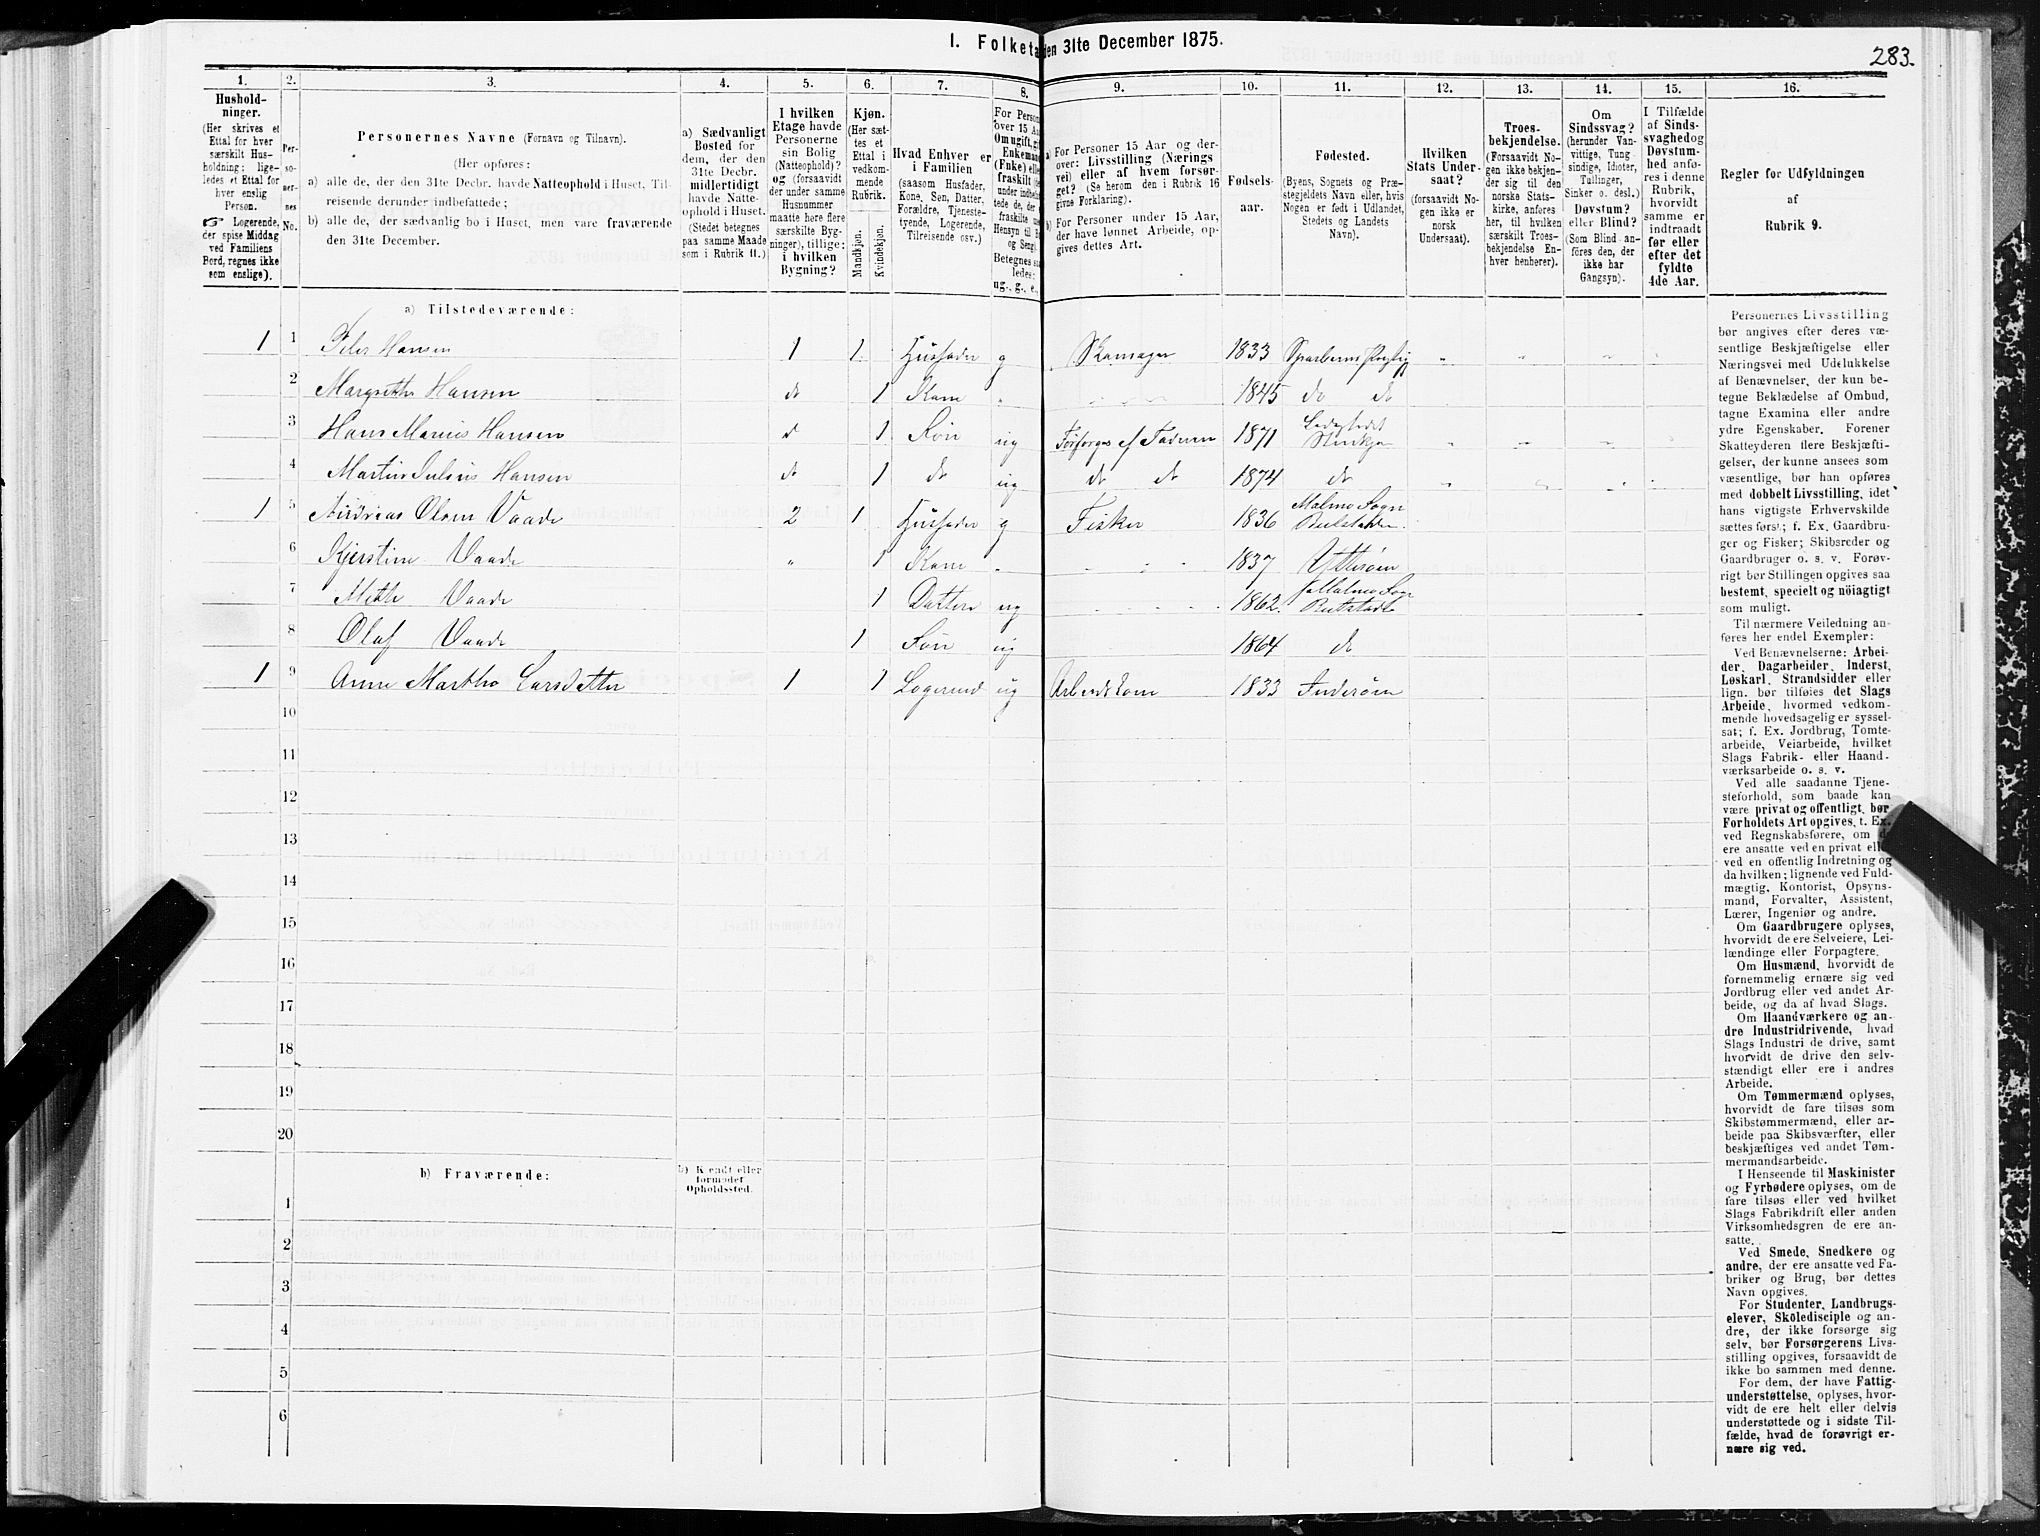 283.
I. Folketa den 31te December 1875.
1. 2. 3. 4. 5. 6. 7. 8. 9. 10. 11. 12. 13. 14. 15. 16.
Hushold-
ninger.
(Her skrives et
Ettal for hver
særskilt Hus-
holdning; lige-
ledes et Ettal for
hver enslig
Person.
☞ Logerende,
der spise Middag
ved Familiens
Bord, regnes ikke
som enslige).
Per-
so-
ner-
nes
No.
Personernes Navne (Fornavn og Tilnavn).
(Her opføres:
a) alle de, der den 31te Decbr. havde Natteophold i Huset, Til-
reisende derunder indbefattede;
b) alle de, der sædvanlig bo i Huset, men vare fraværende
den 31te December.
a) Sædvanligt
Bosted for
dem, der den
31te Decbr.
midlertidigt
havde Natte-
ophold i Huset.
(Stedet betegnes
paa samme Maade
som i Rubrik 11.)
I hvilken
Etage havde
Personerne
sin Bolig
(Natteophold)?
og (forsaavidt
der under samme
Husnummer
maatte høre flere
særskilte Byg-
ninger), tillige:
i hvilken
Bygning?
Kjøn.
(Her sæt-
tes et
Ettal i
vedkom-
mende
Rubrik.
Mandkjøn.
Kvindekjøn.
Hvad Enhver er
i Familien
(saasom Husfader,
Kone, Søn, Datter,
Forældre, Tjeneste-
tyende, Logerende,
Tilreisende osv.)
For Person
over 15 Aa
Om ugift, gif
Enkeman
(Enke) elle
fraskilt (
under indbe
tede de, der
fraskilte m
Hensyn til B
og Seng).
Betegnes sa
ledes:
ug., g., e.,
a) For Personer 15 Aar og der-
over: Livsstilling (Nærings
vei) eller af hvem forsør-
get? (Se herom den i Rubrik 16
givne Forklaring).
b) For Personer under 15 Aar,
der have lønnet Arbeide, op-
gives dettes Art.
Fødsels-
aar.
Fødested.
(Byens, Sognets og Præ-
stegjeldets Navn eller, hvis
Nogen er født i Udlandet,
Stedets og Landets
Navn).
Hvilken
Stats Under-
saat?
(forsaavidt No-
gen ikke er
norsk
Undersaat).
Troes-
bekjendelse.
(Forsaavidt No-
gen ikke bekjen-
der sig til den
norske Stats-
kirke, anføres
her, til hvilken
særskilt Troes-
bekjendelse En-
hver henhører).
Om
Sindssvag?
(herunder Van-
vittige, Tung
sindige, Idioter,
Tullinger,
Sinker o. desl.)
Døvstum?
eller Blind?
(Som Blind an-
føres den, der
ikke har
Gangsyn).
I Tilfælde
af Sinds-
svaghed og
Døvstum-
hed anfø-
res i denne
Rubrik,
hvorvidt
samme er
indtraadt
før eller
efter det
fyldte
4de Aar.
Regler for Udfyldningen
af
Rubrik 9.
a) Tilstedeværende:
1 1 Peter Hansen 1 1 Husfader g Skomager 1833 Sparbuens Præstgj
2 Margrethe Hansen d 1 Kone 1845 do d
3 Hans Marius Hansen d 1 Søn ug Forsørges af Faderen 1871
4 Martin Julius Hansen d 1 d ug d d 1874 d
1 5 Andreas Olsen Vaade 2 1 Husfader g Fisker 1836 Malmo Sogn
6 Kjerstine Vaade 1 Kone 1837 Ytterøen
7 Mette Vaade 1 Datter ug 1862 Malmo Sogn
8 Olaf Vaade 1 Søn ug 1864 d
1 9 Anne Martha Larsdatter 1 1 Logerend ug 1833 Inderøen
10
11
12
13
14
15
16
17
18
19
20
b) Fraværende:
b) Kjendt eller
formodet
Opholdssted.
1
2
3
4
5
6
Personernes Livsstilling
bør angives efter deres væ-
sentlige Beskjæftigelse eller
Næringsvei med Udelukkelse
af Benævnelser, der kun be-
tegne Beklædelse af Ombud,
tagne Examina eller andre
ydre Egenskaber. Forener
Skatteyderen flere Beskjæfti-
gelser, der kunne ansees som
væsentlige, bør han opføres
med dobbelt Livsstilling, idet
hans vigtigste Erhvervskilde
sættes først; f. Ex. Gaardbru-
ger og Fisker; Skibsreder og
Gaardbruger o. s. v. Forøv-
rigt bør Stillingen opgives saa
bestemt, specielt og nöiagtigt
som muligt.
Til nærmere Veiledning an-
føres her endel Exempler:
Ved Benævnelserne: Arbei-
der, Dagarbeider, Inderst,
Løskarl, Strandsidder eller
lign. bør tilføies det Slags
Arbeide, hvormed vedkom-
mende hovedsagelig er syssel-
sat; f. Ex. Jordbrug, Tomte-
arbeide, Veiarbeide, hvilket
Slags Fabrik- eller Haand-
værksarbeide o. s. v.
Ved alle saadanne Tjene-
steforhold, som baade kan
være privat og offentligt, bør
Forholdets Art opgives, t. Ex.
ved Regnskabsførere, om d
ere ansatte ved en privat ell
ved en offentlig Indretning og
da hvilken; lignende ved Fuld-
mægtig, Kontorist, Opsyns-
mand, Forvalter, Assistent,
Lærer, Ingeniør og andre.
Om Gaardbrugere oplyses,
hvorvidt de ere Selveiere, Lei-
lændinge eller Forpagtere.
Om Husmænd, hvorvidt de
fornemmelig ernære sig ved
Jordbrug eller ved andet Ar-
beide, og da af hvad Slags.
Om Haandværkere og an-
dre Industridrivende, hvad
Slags Industri de drive, samt
hvorvidt de drive den selv-
stændigt eller ere i andres
Arbeide.
Om Tømmermænd oplyses,
hvorvidt de fare tilsøs som
Skibstømmermænd, eller ar-
beide paa Skibsværfter, eller
beskjæftiges ved andet Tøm-
mermandsarbeide.
I Henseende til Maskinister
og Fyrbødere oplyses, om de
fare tilsøs eller ved hvilket
Slags Fabrikdrift eller anden
Virksomhedsgren de ere an-
satte.
Ved Smede, Snedkere og
andre, der ere ansatte ved Fa-
briker og Brug, bør dettes
Navn opgives.
For Studenter, Landbrugs-
elever, Skoledisciple og an-
dre, der ikke forsørge sig
selv, bør Forsørgerens Livs-
stilling opgives, forsaavidt de
ikke bo sammen med denne.
For dem, der have Fattig-
understøttelse, oplyses, hvor-
vidt de ere helt eller delvis
understøttede og i sidste Til-
fælde, hvad de forøvrigt er-
nære sig ved.